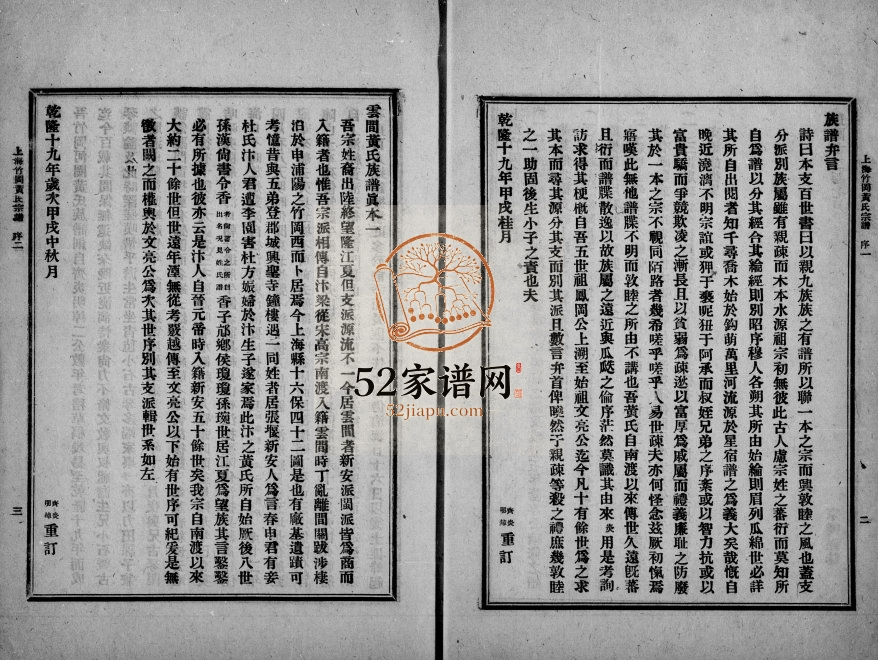 上海竹岡黃氏宗譜 序一
二
族譜弁言
詩曰本支百世書曰以親九族族之有譜所以聯一本之宗而興敦睦之風也蓋支
分派別族屬雖有親疎而木本水源祖宗初無彼此古人慮宗姓之蕃衍而莫知所
自爲譜以分其經合其綸經則別昭序穆人各朔其所由始綸則眉列瓜綿世必詳
其所自出閱者知千尋喬木始於鈎萌萬里河流源於星宿譜之爲義大矣哉慨自
晚近澆漓不明宗誼或狎于褻呢狃于阿承而叔姪兄弟之序紊或以智力抗或以
富貴驕而爭競欺凌之漸長且以貧弱爲疎逖以富厚爲戚屬而禮義廉耻之防廢
其於一本之宗不戰同陌路者幾希嗟乎嗟乎人易世疎夫亦何怪念茲厥初愾焉
寤嘆此無他譜牒不明而敦睦之所由不講也吾黃氏自南渡以來傳世久遠旣蕃
且衍而譜牒散逸以故族屬之遠近與瓜瓞之倫序茫然莫識其由來炎用是考詢
訪求得其梗概自吾五世祖鳳岡公上溯至始祖文亮公迄今凡十有餘世爲之求
其本而尋其源分其支而別其派且數言弁首俾曉然于親疎等殺之禮庶幾敦睦
之一助固後生小子之責也夫
乾隆十九年甲戌桂月
重訂
雲間黃氏族譜眞本一
吾宗姓裔出陸終望隆江夏但支派源流不一今居雲間者新安派閩派皆爲商而
入籍者也惟吾宗派相傳自汴梁從宋高宗南渡入籍雲間時丁亂離間關跋涉棲
泊於申浦陽之竹岡西而卜居焉今上海縣十六保四十二圖是也有廠基遺蹟可
考憶昔與五弟登郡城興聖寺鐘樓遇一同姓者居張堰新安人爲言春申君有妾
杜氏汴人君遭李園害杜方娠婦於汴生子遂家焉此汴之黃氏所自始厥後八世
孫漢尙書令香者尙書令之所自出名現見姓氏譜香子邟鄉侯瓊瓊孫琬世居江夏爲望族其言鑿鑿
必有所據也彼亦云是汴人自晉元帝時入籍新安五十餘世矣我宗自南渡以來
大約二十餘世但世遠年湮無從考覈越傳至文亮公以下始有世序可紀爰是無
徵者闕之而權輿於文亮公爲次其世序別其支派輯世系如左
乾隆十九年歲次甲戌中秋月
重訂
上海竹岡黃氏宗譜 序二
三
52家谱网
52jiapu.com